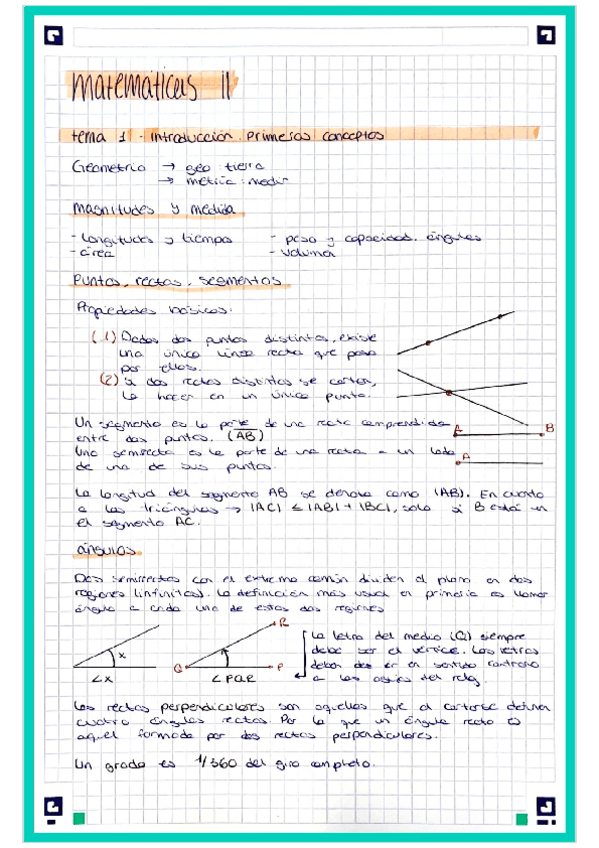 Matemáticas II
tema 1 · introducción. Primeros conceptos
Geometría → geo: tierra
→ metría: medir
Magnitudes y medida
- longitudes y tiempo - peso y capacidad. ángulos
- área - volumen
Puntos, rectas, segmentos
Propiedades básicas:
(1) Dados dos puntos distintos, existe
una única línea recta que pasa
por ellos.
(2) Si dos rectas distintas se cortan,
lo hacen en un único punto.
Un segmento es la parte de una recta comprendida
entre dos puntos. (AB)
A B
Una semirrecta es la parte de una recta a un lado
de uno de sus puntos.
A
La longitud del segmento AB se denota como |AB|. En cuanto
a los triángulos → |AC| ≤ |AB| + |BC|, solo si B está en
el segmento AC.
ángulos
Dos semirrectas con el extremo común dividen el plano en dos
regiones (infinitas). La definición más usual en primaria es llamar
ángulo a cada una de estas dos regiones
x
∠x
R
Q P
∠PQR
La letra del medio (Q) siempre
debe ser el vértice. Las letras
deben de ir en sentido contrario
a las agujas del reloj
Las rectas perpendiculares son aquellas que al cortarse definen
cuatro ángulos rectos. Por lo que un ángulo recto es
aquel formado por dos rectas perpendiculares.
Un grado es 1/360 del giro completo.